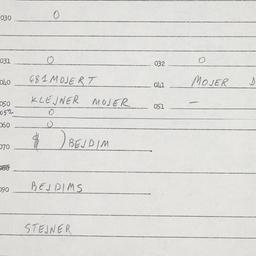 030 0
031 0 032 0
040 G81MOJERT 041 MOJER D
050 KLEJNER MOJER 051 -
052 0
060 0
070 $ ) BEJDIM
080
090 BEJDIMS
STEJNER